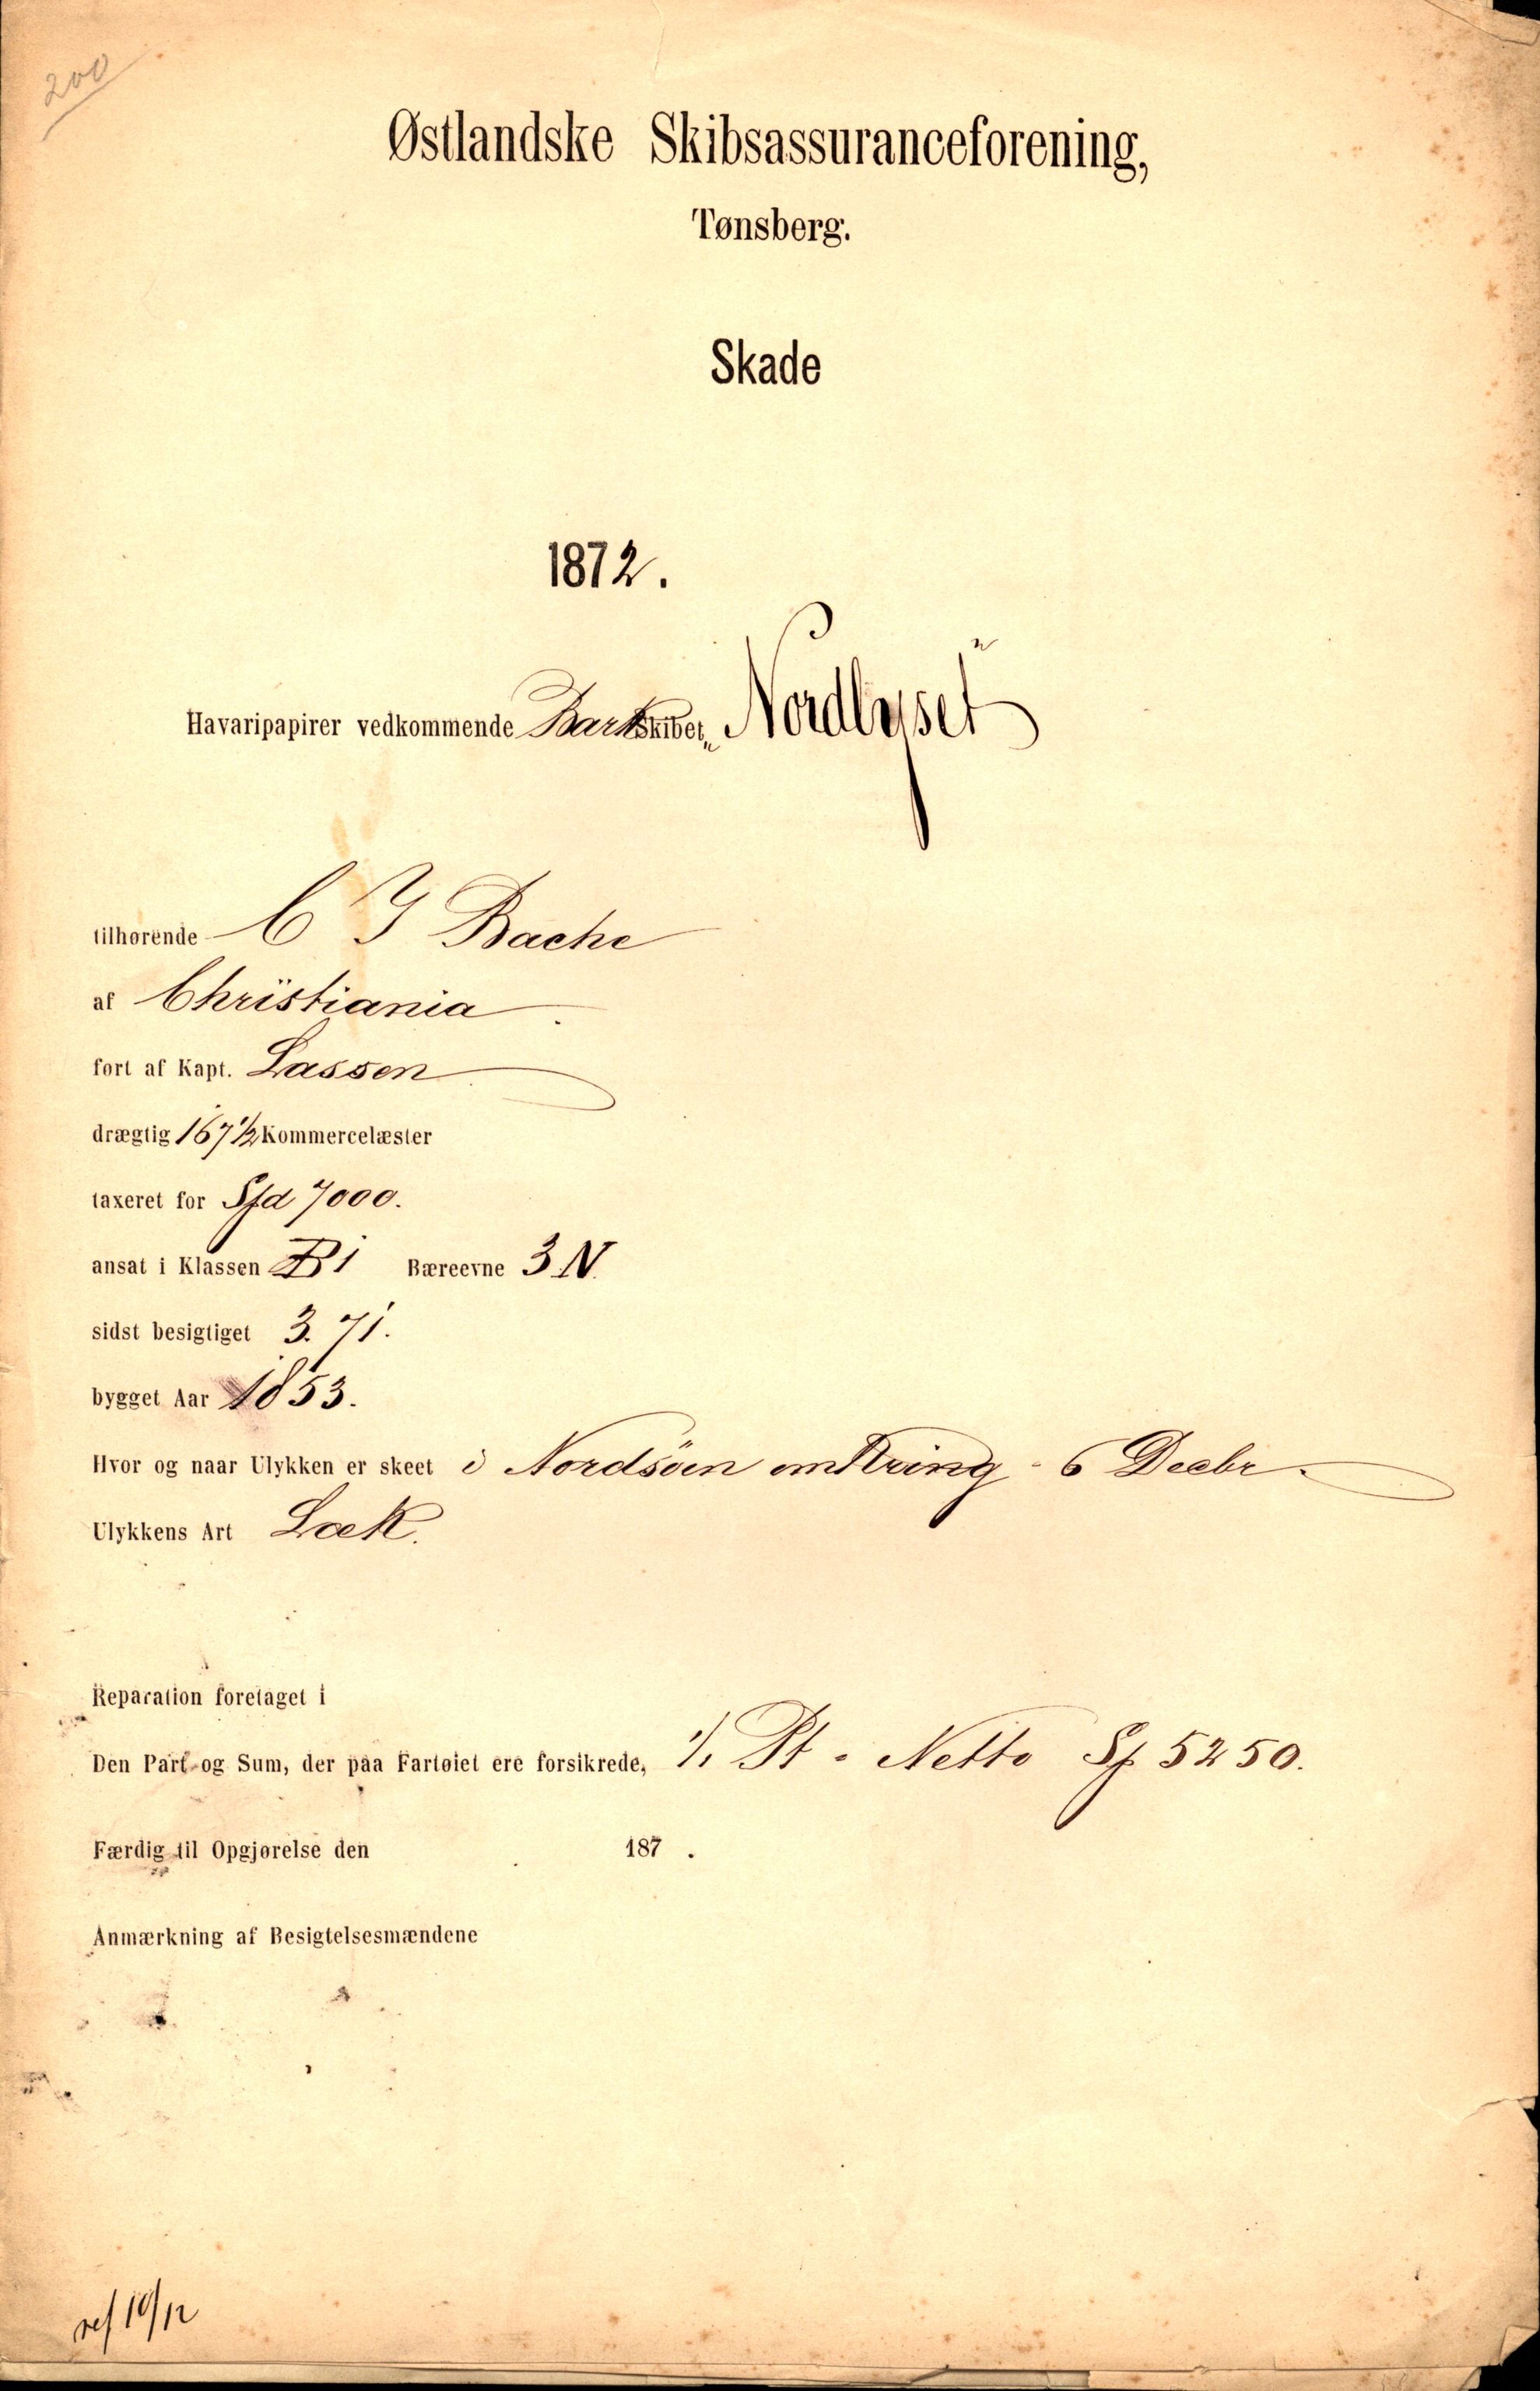 200
Østlandske Skibsassuranceforening,
Tønsberg.
Skade
1872.
Havaripapirer vedkommende Barkskibet „Nordlyset"
tilhørende C J Bache
af Christiania
ført af Kapt. Lassen
drægtig 167 1/2 Kommercelæster
taxeret for Spd 7000.
ansat i Klassen B1 Bæreevne 3 N.
sidst besigtiget 3. 71.
bygget Aar 1853.
Hvor og naar Ulykken er skeet i Nordsöen omkring 6 Decbr.
Ulykkens Art Læk.
Reparation foretaget i
Den Part og Sum, der paa Fartøiet ere forsikrede, 1/1 Pt - Netto Sp 5250.
Færdig til Opgjørelse den 187 .
Anmærkning af Besigtelsesmændene
ref 10/12